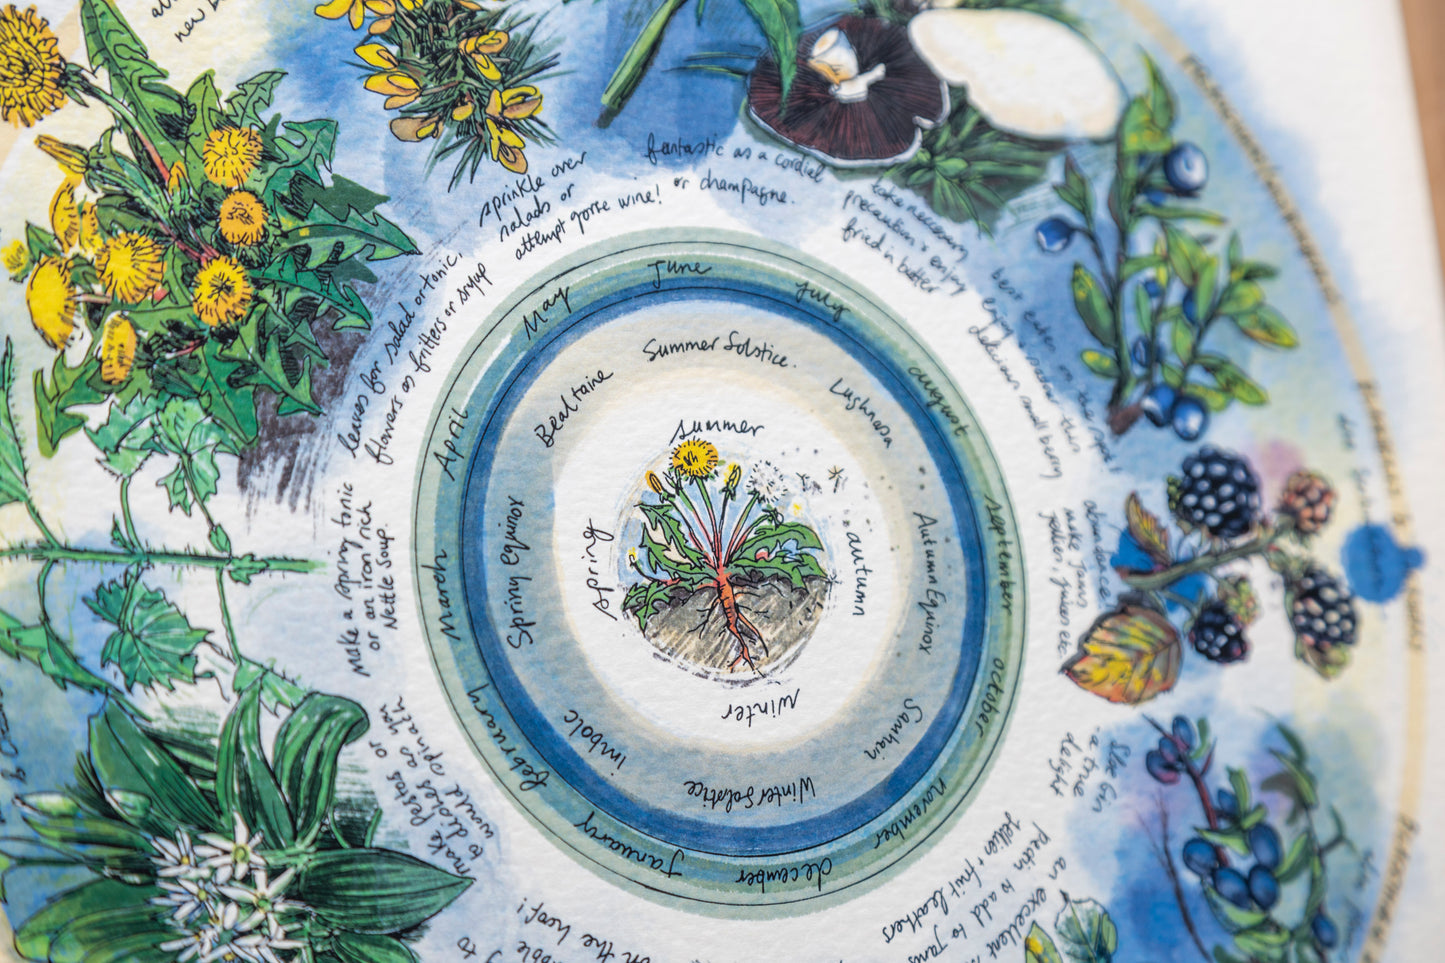 new
sprinkle over
salads or
attempt gorse wine!
fantastic as a cordial
or champagne.
take necessary
precautions & enjoy
fried in butter
best eaten on the
enjoy
delicious small berry
leaves for salad or tonic,
flowers as fritters or syrup
make a spring tonic
or an iron rich
Nettle Soup
make Pestos or
to dishes as you
would spinach
abundance
make Jams
Sloe Gin
- a true
delight
an excellent
Pectin to add to Jams
jellies & fruit leathers
on the hoof!
January
February
March
April
May
June
July
august
september
october
november
december
Imbolc
Spring Equinox
Bealtaine
Summer Solstice.
Lughnasa
Autumn Equinox
Samhain
Winter Solstice
spring
summer
autumn
winter